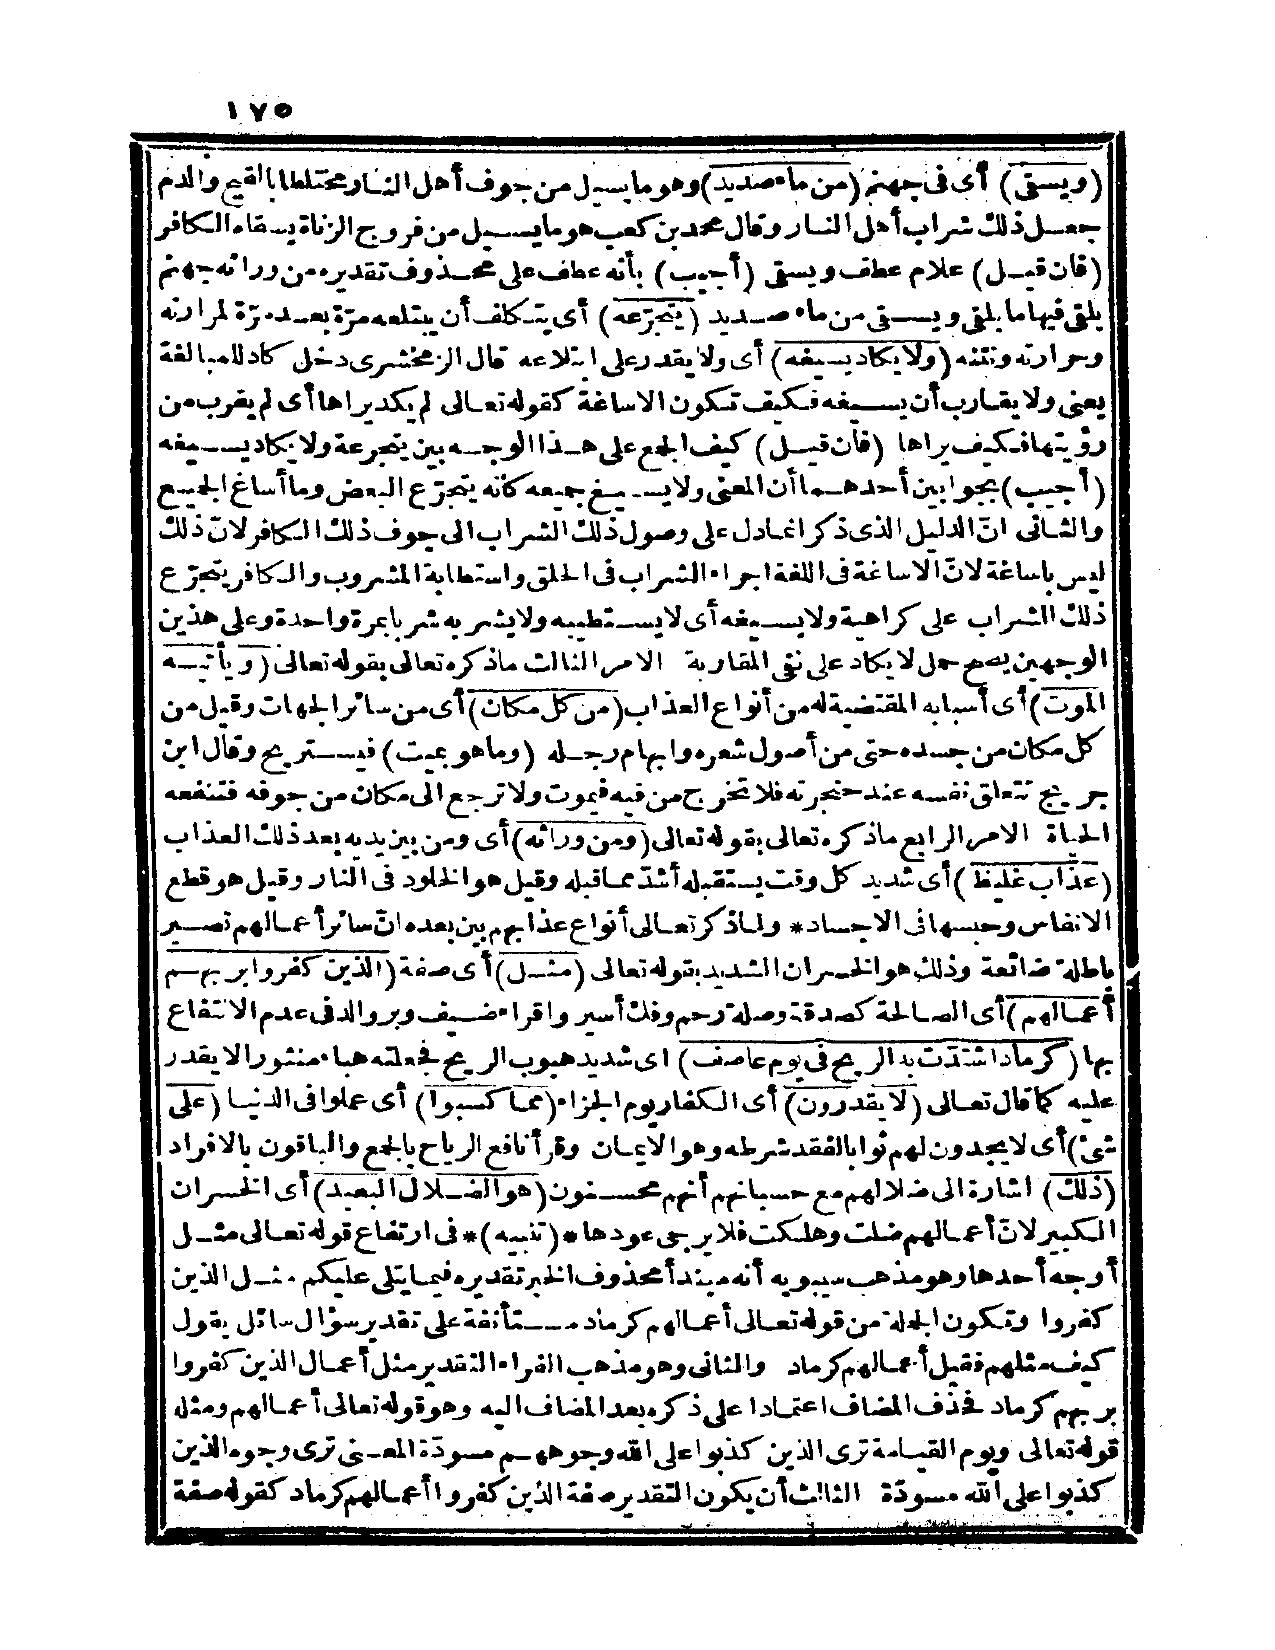 ١٧٥
(ويسقى) أى فى جهنم (من ماء صديد) وهو ما يسيل من جوف أهل النار مختلطا بالقيح والدم
جعل ذلك شراب أهل النار وقال محمد بن كعب هو ما يسيل من فروج الزناة يسقاه الكافر
(فان قيل) علام عطف ويسقى (أجيب) بأنه عطف على محذوف تقديره من ورائه جهنم
يلقى فيها ما يلقى ويسقى من ماء صديد (يتجرّعه) أى يتكلف أن يبتلعه مرّة بعد مرّة لمرارته
وحرارته ونتنه (ولا يكاد يسيغه) أى ولا يقدر على ابتلاعه قال الزمخشرى دخل كاد للمبالغة
يعنى ولا يقارب أن يسيغه فكيف تكون الاساغة كقوله تعالى لم يكد يراها أى لم يقرب من
رؤيتها فكيف يراها (فان قيل) كيف الجمع على هذا الوجه بين يتجرعه ولا يكاد يسيغه
(أجيب) بجوابين أحدهما أن المعنى ولا يسيغ جميعه كأنه يتجرّع البعض وما أساغ الجميع
والثانى انّ الدليل الذى ذكر انما دل على وصول ذلك الشراب الى جوف ذلك الكافر لانّ ذلك
ليس باساغة لانّ الاساغة فى اللغة اجراء الشراب فى الحلق واستطابة المشروب والكافر يتجرّع
ذلك الشراب على كراهية ولا يسيغه أى لا يستطيبه ولا يشربه شربا بمرة واحدة وعلى هذين
الوجهين يصح حمل لا يكاد على نفى المقاربة الامر الثالث ما ذكره تعالى بقوله تعالى (ويأتيه
الموت) أى أسبابه المقتضية له من أنواع العذاب (من كل مكان) أى من سائر الجهات وقيل من
كل مكان من جسده حتى من أصول شعره وابهام رجله (وما هو بميت) فيستريح وقال ابن
جريج تتعلق نفسه عند حنجرته فلا تخرج من فيه فيموت ولا ترجع الى مكان من جوفه فتنفعه
الحياة الامر الرابع ما ذكره تعالى بقوله تعالى (ومن ورائه) أى ومن بين يديه بعد ذلك العذاب
(عذاب غليظ) أى شديد كل وقت يستقبله أشدّ مما قبله وقيل هو الخلود فى النار وقيل هو قطع
الانفاس وحبسها فى الاجساد * ولما ذكر تعالى أنواع عذابهم بين بعده انّ سائر أعمالهم تصير
باطلة ضائعة وذلك هو الخسران الشديد بقوله تعالى (مثل) أى صفة (الذين كفروا بربهم
أعمالهم) أى الصالحة كصدقة وصلة رحم وفك أسير واقراء ضيف وبر والد فى عدم الانتفاع
بها (كرماد اشتدّت به الريح فى يوم عاصف) اى شديد هبوب الريح فجعلته هباء منثورا لا يقدر
عليه كما قال تعالى (لا يقدرون) أى الكفار يوم الجزاء (مما كسبوا) أى عملوا فى الدنيا (على
شئ) أى لا يجدون لهم ثوابا لفقد شرطه وهو الايمان وقرأ نافع الرياح بالجمع والباقون بالافراد
(ذلك) اشارة الى ضلالهم مع حسبانهم أنهم محسنون (هو الضلال البعيد) أى الخسران
الكبير لانّ أعمالهم ضلت وهلكت فلا يرجى عودها * (تنبيه) * فى ارتفاع قوله تعالى مثل
أوجه أحدها وهو مذهب سيبويه أنه مبتدأ محذوف الخبر تقديره فيما يتلى عليكم مثل الذين
كفروا وتكون الجملة من قوله تعالى أعمالهم كرماد مستأنفة على تقدير سؤال سائل يقول
كيف مثلهم فقيل أعمالهم كرماد والثانى وهو مذهب الفراء التقدير مثل أعمال الذين كفروا
بربهم كرماد فحذف المضاف اعتمادا على ذكره بعد المضاف اليه وهو قوله تعالى أعمالهم ومثله
قوله تعالى ويوم القيامة ترى الذين كذبوا على الله وجوههم مسودّة المعنى ترى وجوه الذين
كذبوا على الله مسودّة الثالث أن يكون التقدير صفة الذين كفروا أعمالهم كرماد كقوله صفة